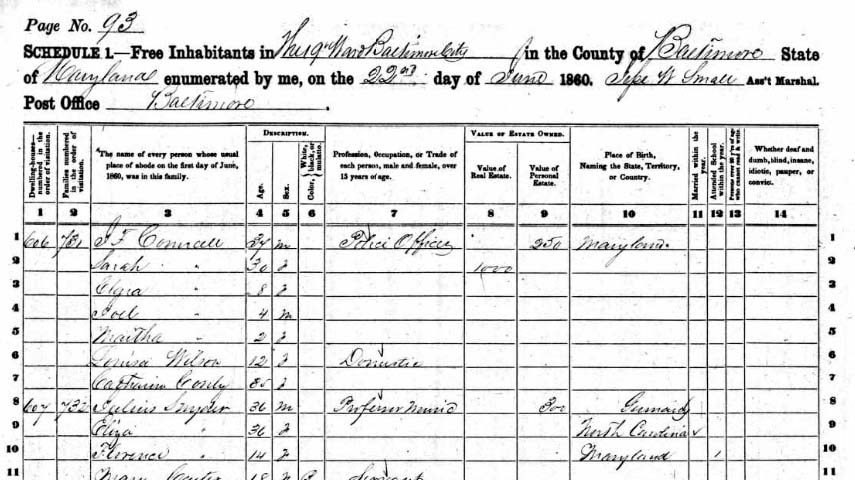 Page No. 93
SCHEDULE 1.—Free Inhabitants in The 19th Ward Baltimore City in the County of Baltimore State
of Maryland enumerated by me, on the 22nd day of June 1860. Small Ass't Marshal.
Post Office Baltimore.
Dwelling-houses numbered in the order of visitation.
Families numbered in the order of visitation.
The name of every person whose usual place of abode on the first day of June, 1860, was in this family.
DESCRIPTION.
Age.
Sex.
Color, White, black, or mulatto.
Profession, Occupation, or Trade of each person, male and female, over 15 years of age.
VALUE OF ESTATE OWNED.
Value of Real Estate.
Value of Personal Estate.
Place of Birth, Naming the State, Territory, or Country.
Married within the year.
Attended School within the year.
Persons over 20 y'rs of age who cannot read & write.
Whether deaf and dumb, blind, insane, idiotic, pauper, or convict.
1 2 3 4 5 6 7 8 9 10 11 12 13 14
1 606 731 J F 34 m Police Officer 250 Maryland 1
2 Sarah " 30 f 1000 2
3 " 8 f 3
4 Joel " 4 m 4
5 Martha " 2 f 5
6 Louisa Wilson 12 f Domestic 6
7 Catherine f 7
8 607 732 Julius Snyder 36 m Professor Music 300 Germany 8
9 Eliza " 36 f North Carolina 9
10 Florence " 14 f Maryland 1 10
11 Mary 18 Servant 11